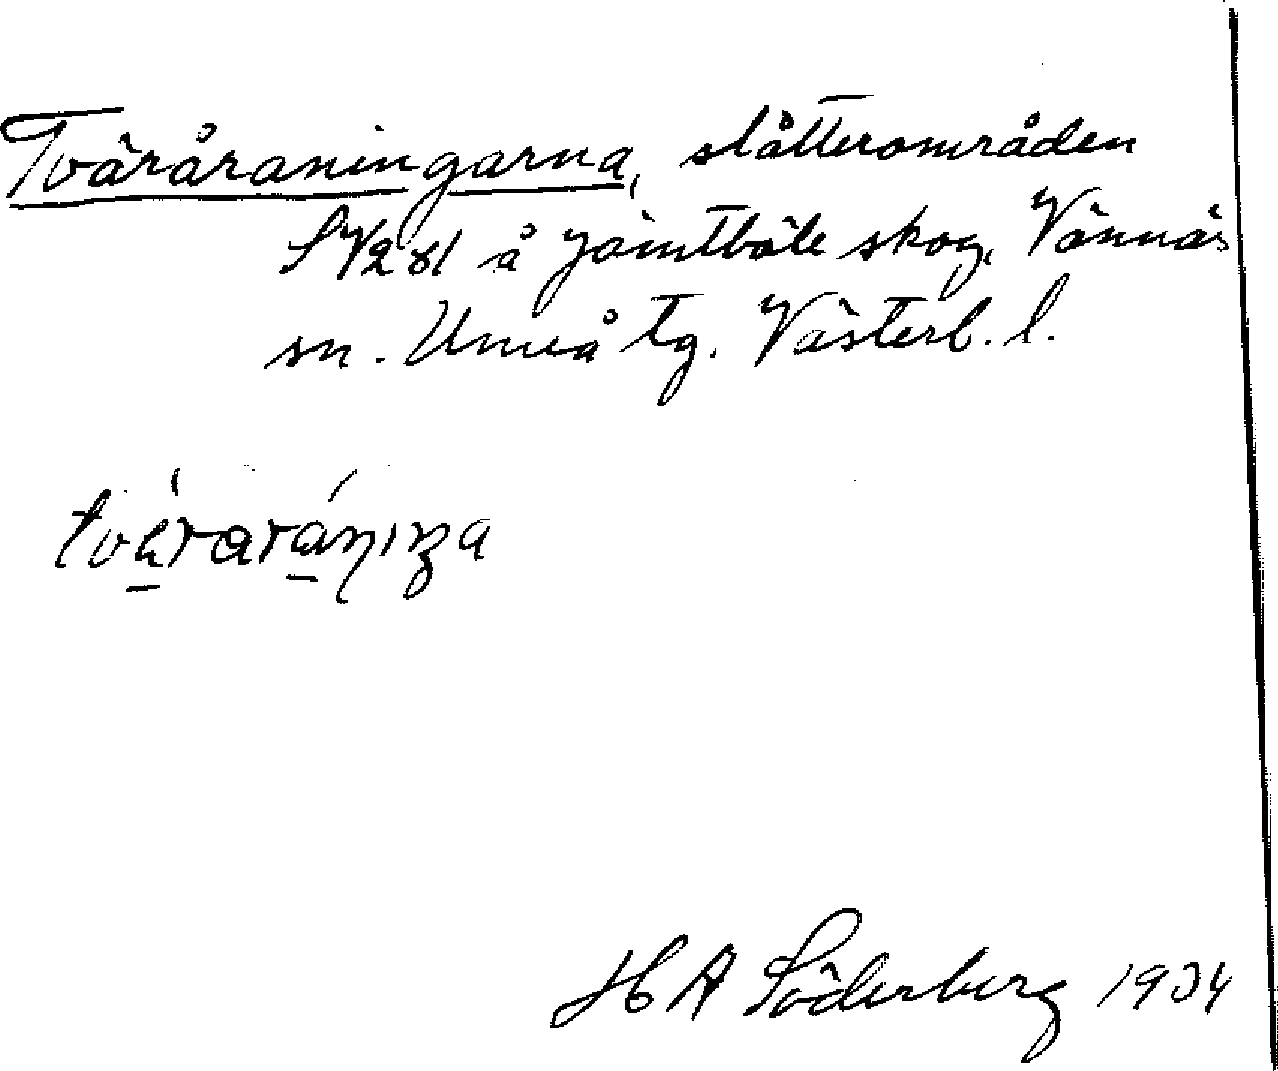 Tväråraningarna, slåtterområden
å Jämtböle skog, Vännäs
sn. Umeå tg. Västerb. l.
H A Söderberg 1934